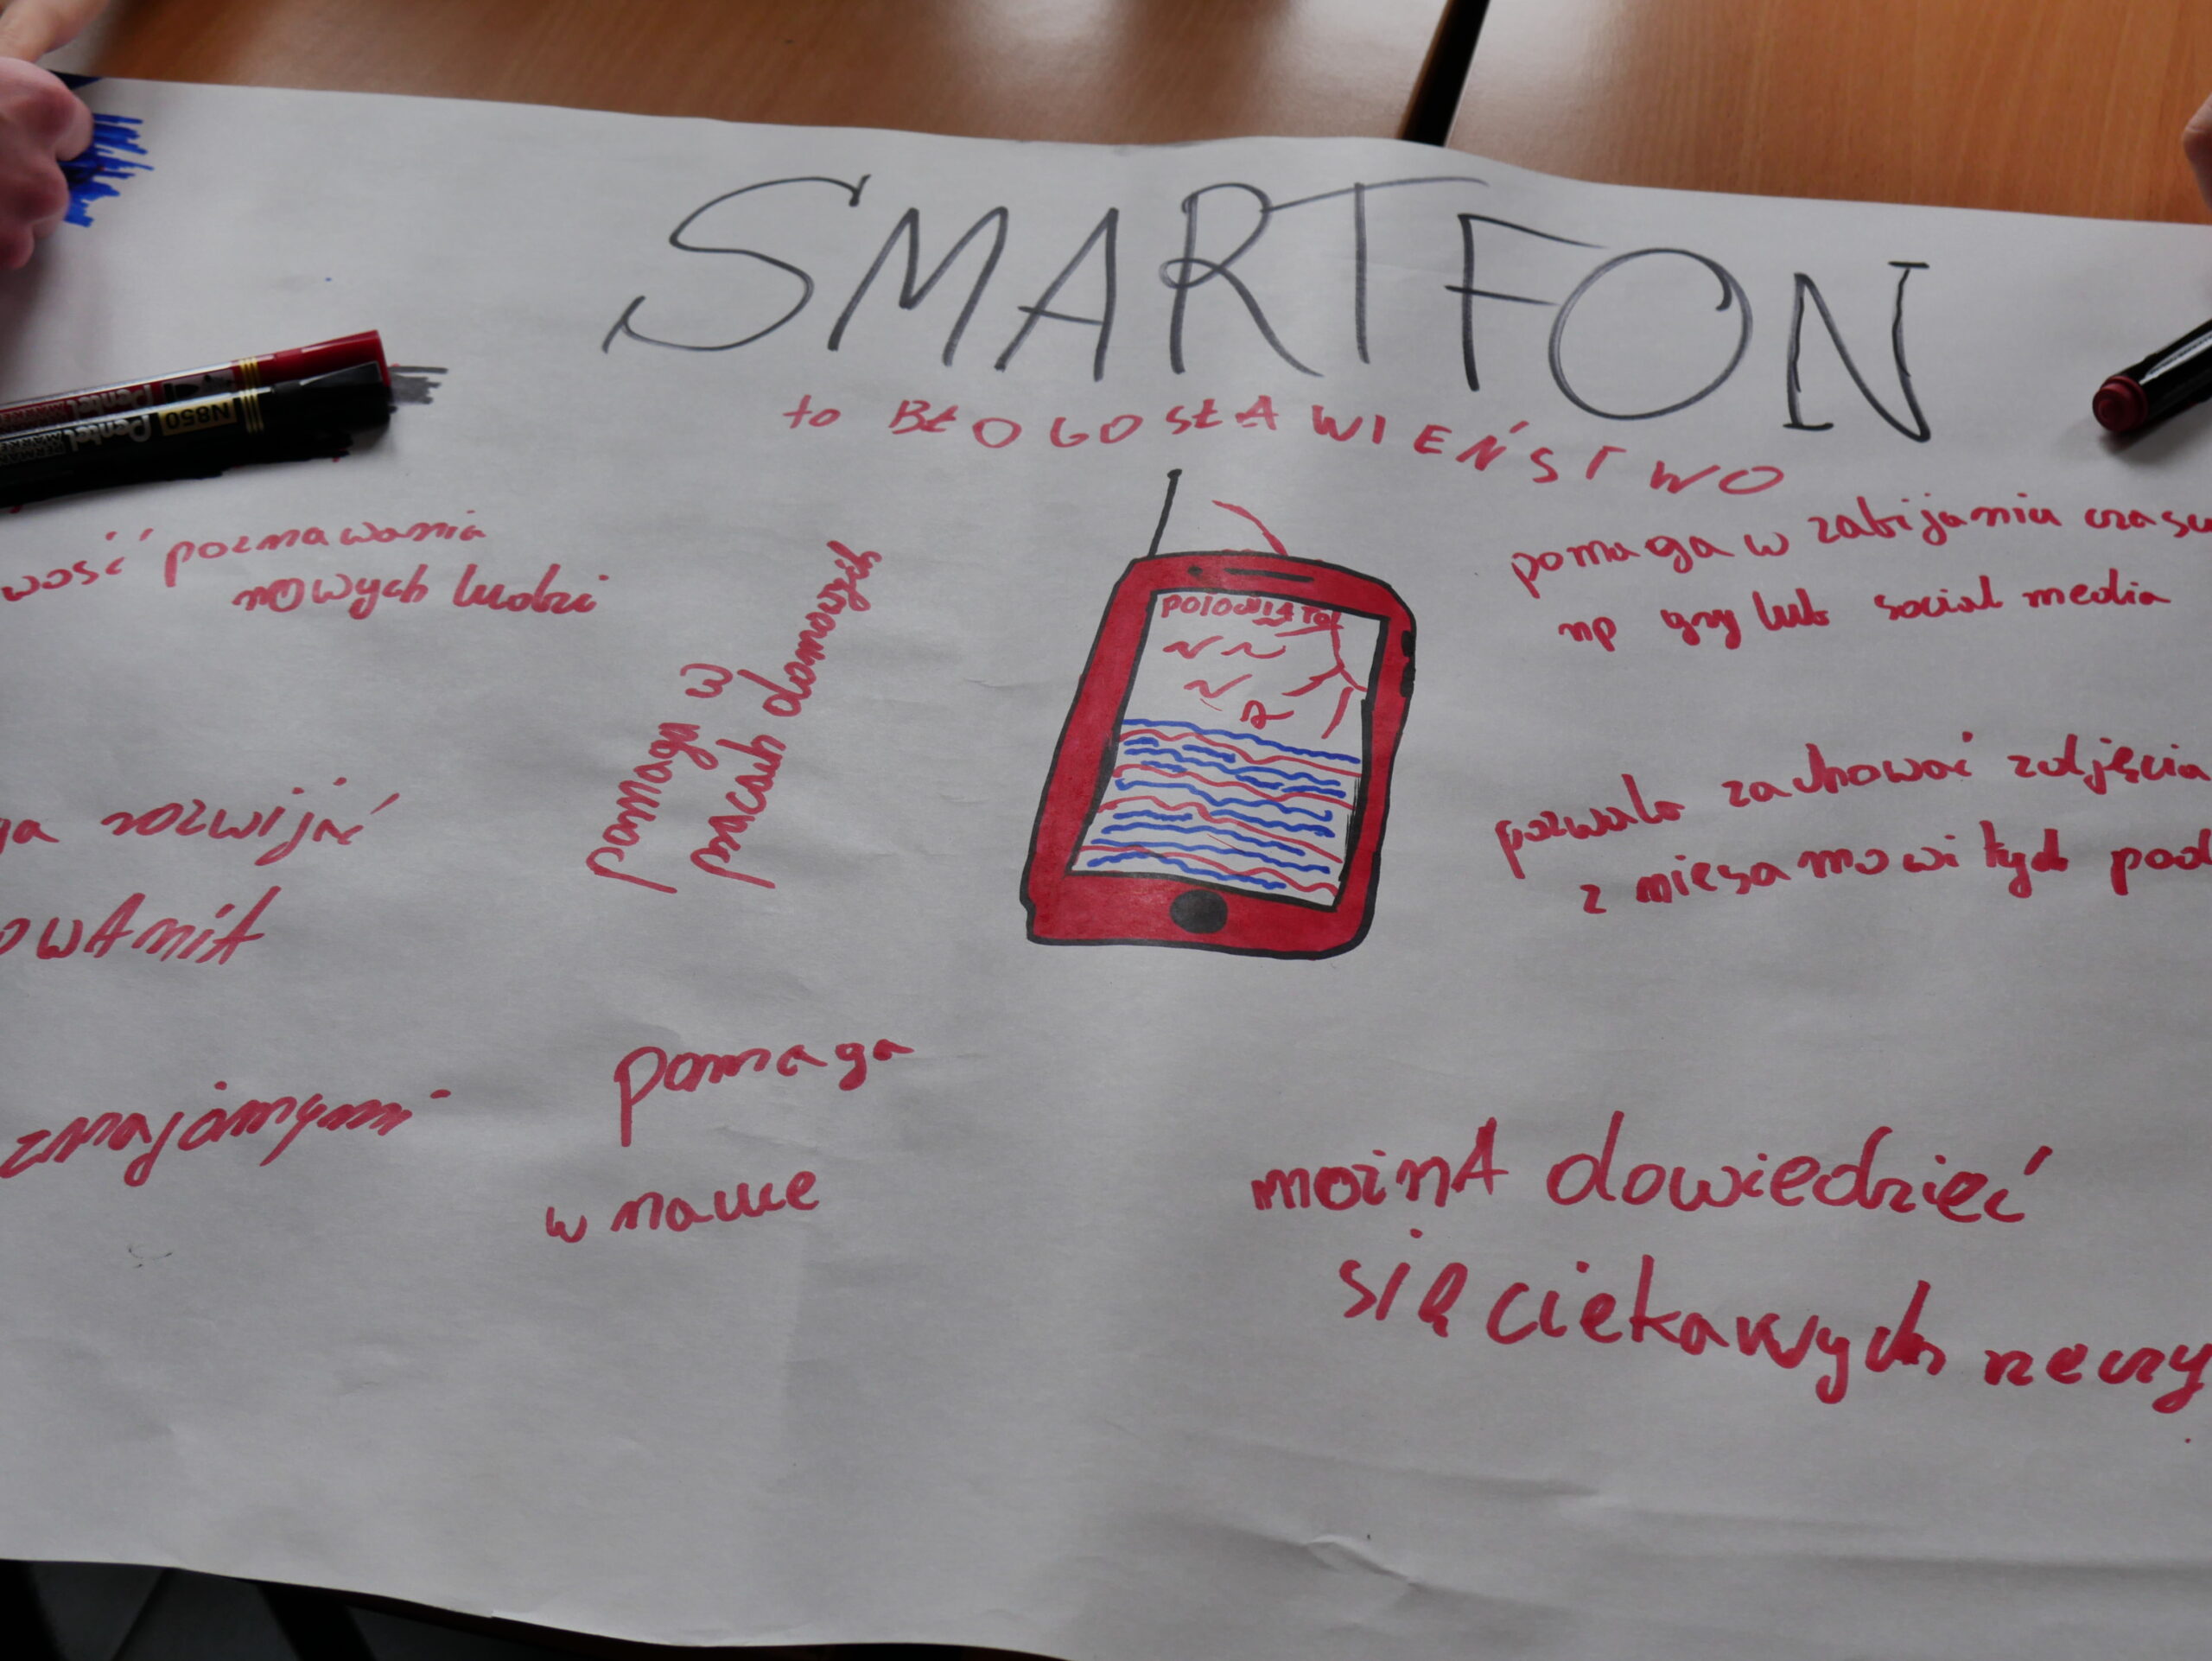 SMARTFON
to BŁOGOSŁAWIEŃSTWO
wość poznawania
nowych ludzi
pomaga w
pracach domowych
pomaga w zabijaniu czasu
np gry lub social media
pozwala zachować zdjęcia
z niesamowitych pod
ga rozwijać
owAniA
znajomymi
pomaga
w nauce
możnA dowiedzieć
się ciekawych rzeczy
Pentel
N850
Pentel